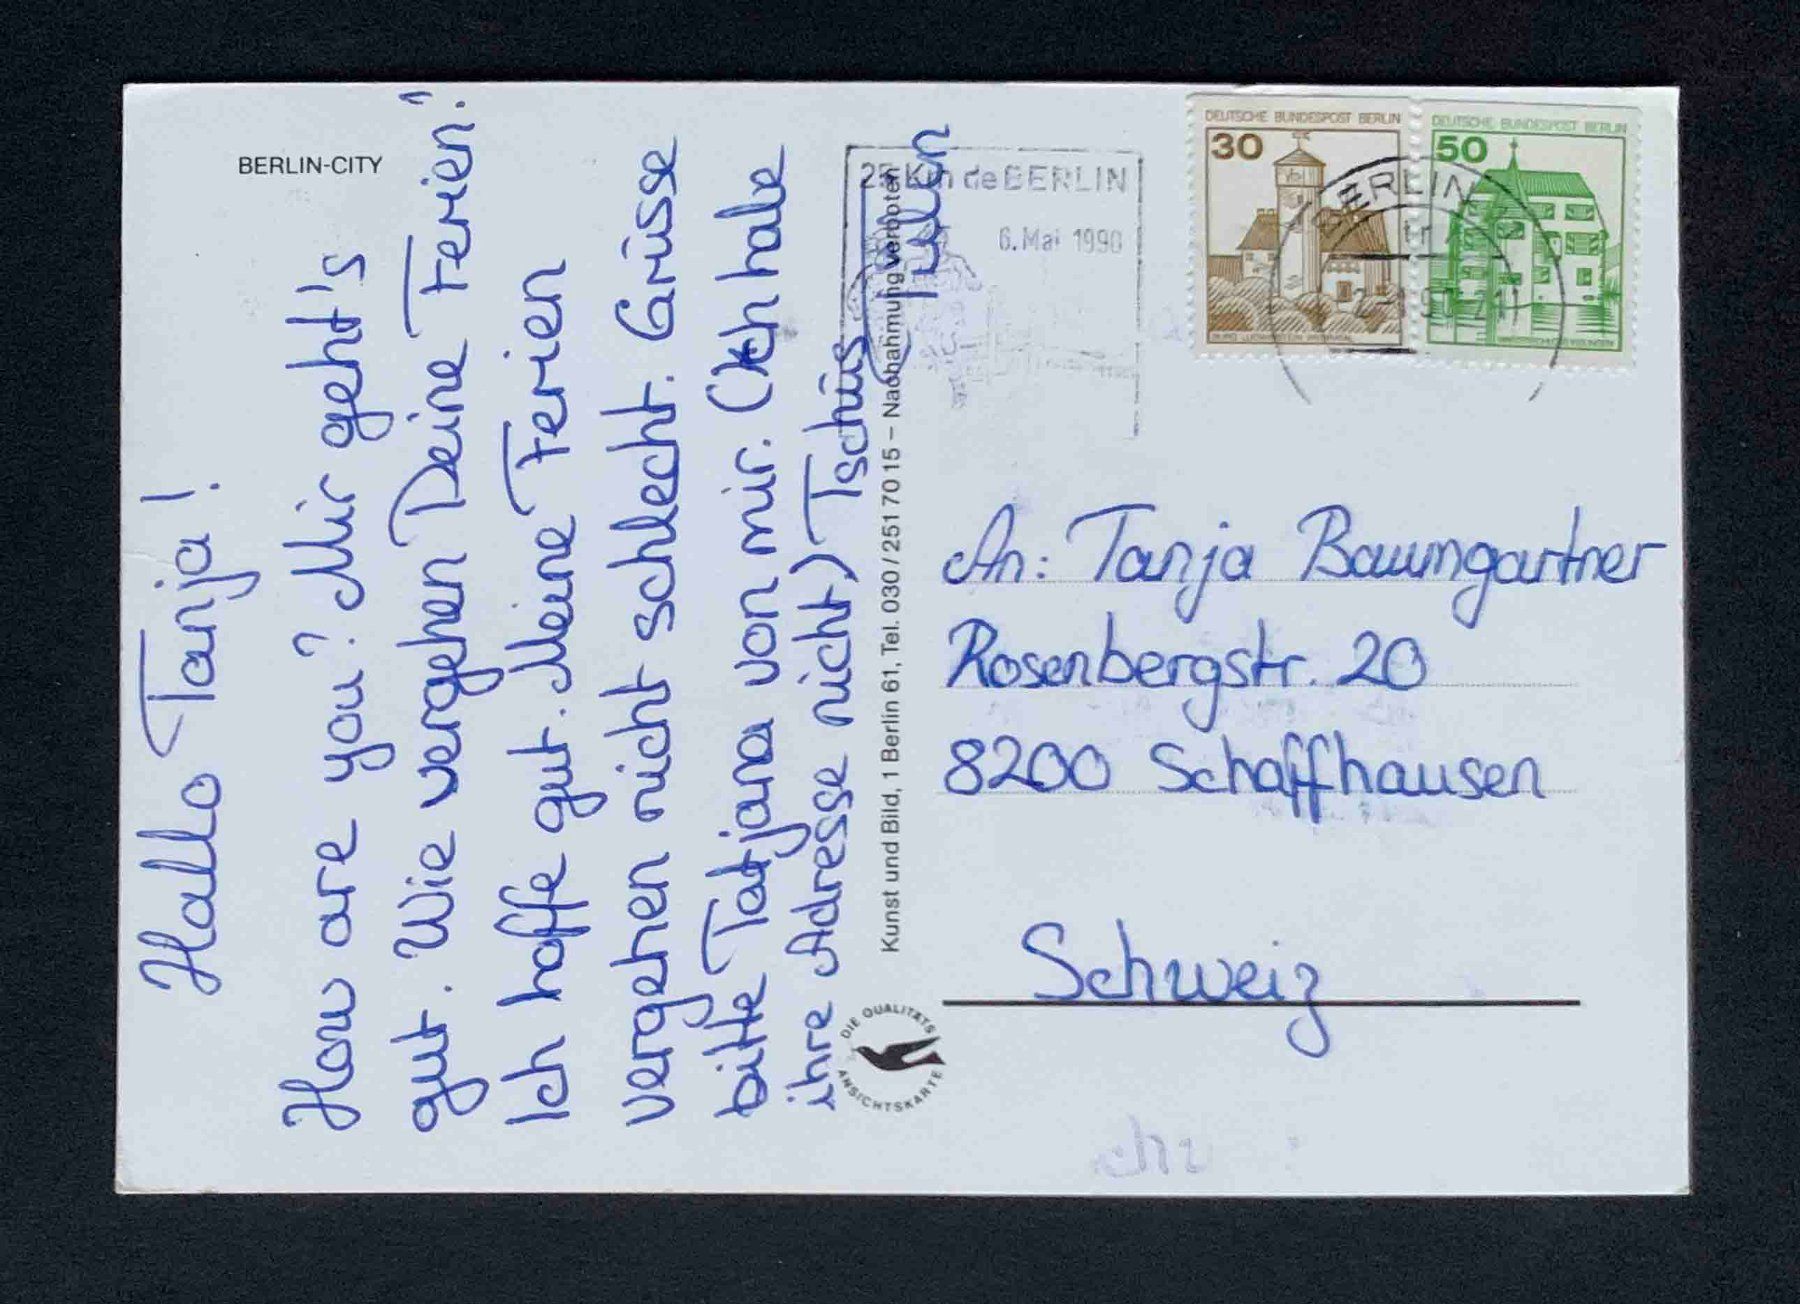 BERLIN-CITY
Hallo Tanja!
How are you? Mir geht's
gut. Wie vergehen Deine Ferien?
Ich hoffe gut. Meine Ferien
vergehen nicht schlecht. Grüsse
bitte Tatjana von mir. (Ich habe
ihre Adresse nicht) Tschüs
Kunst und Bild, 1 Berlin 61, Tel. 030/251 70 15 – Nachahmung verboten
DIE QUALITÄTS
ANSICHTSKARTE
25 Km de BERLIN
6. Mai 1990
DEUTSCHE BUNDESPOST BERLIN
30
DEUTSCHE BUNDESPOST BERLIN
50
BERLIN
An: Tanja Baumgartner
Rosenbergstr. 20
8200 Schaffhausen
Schweiz